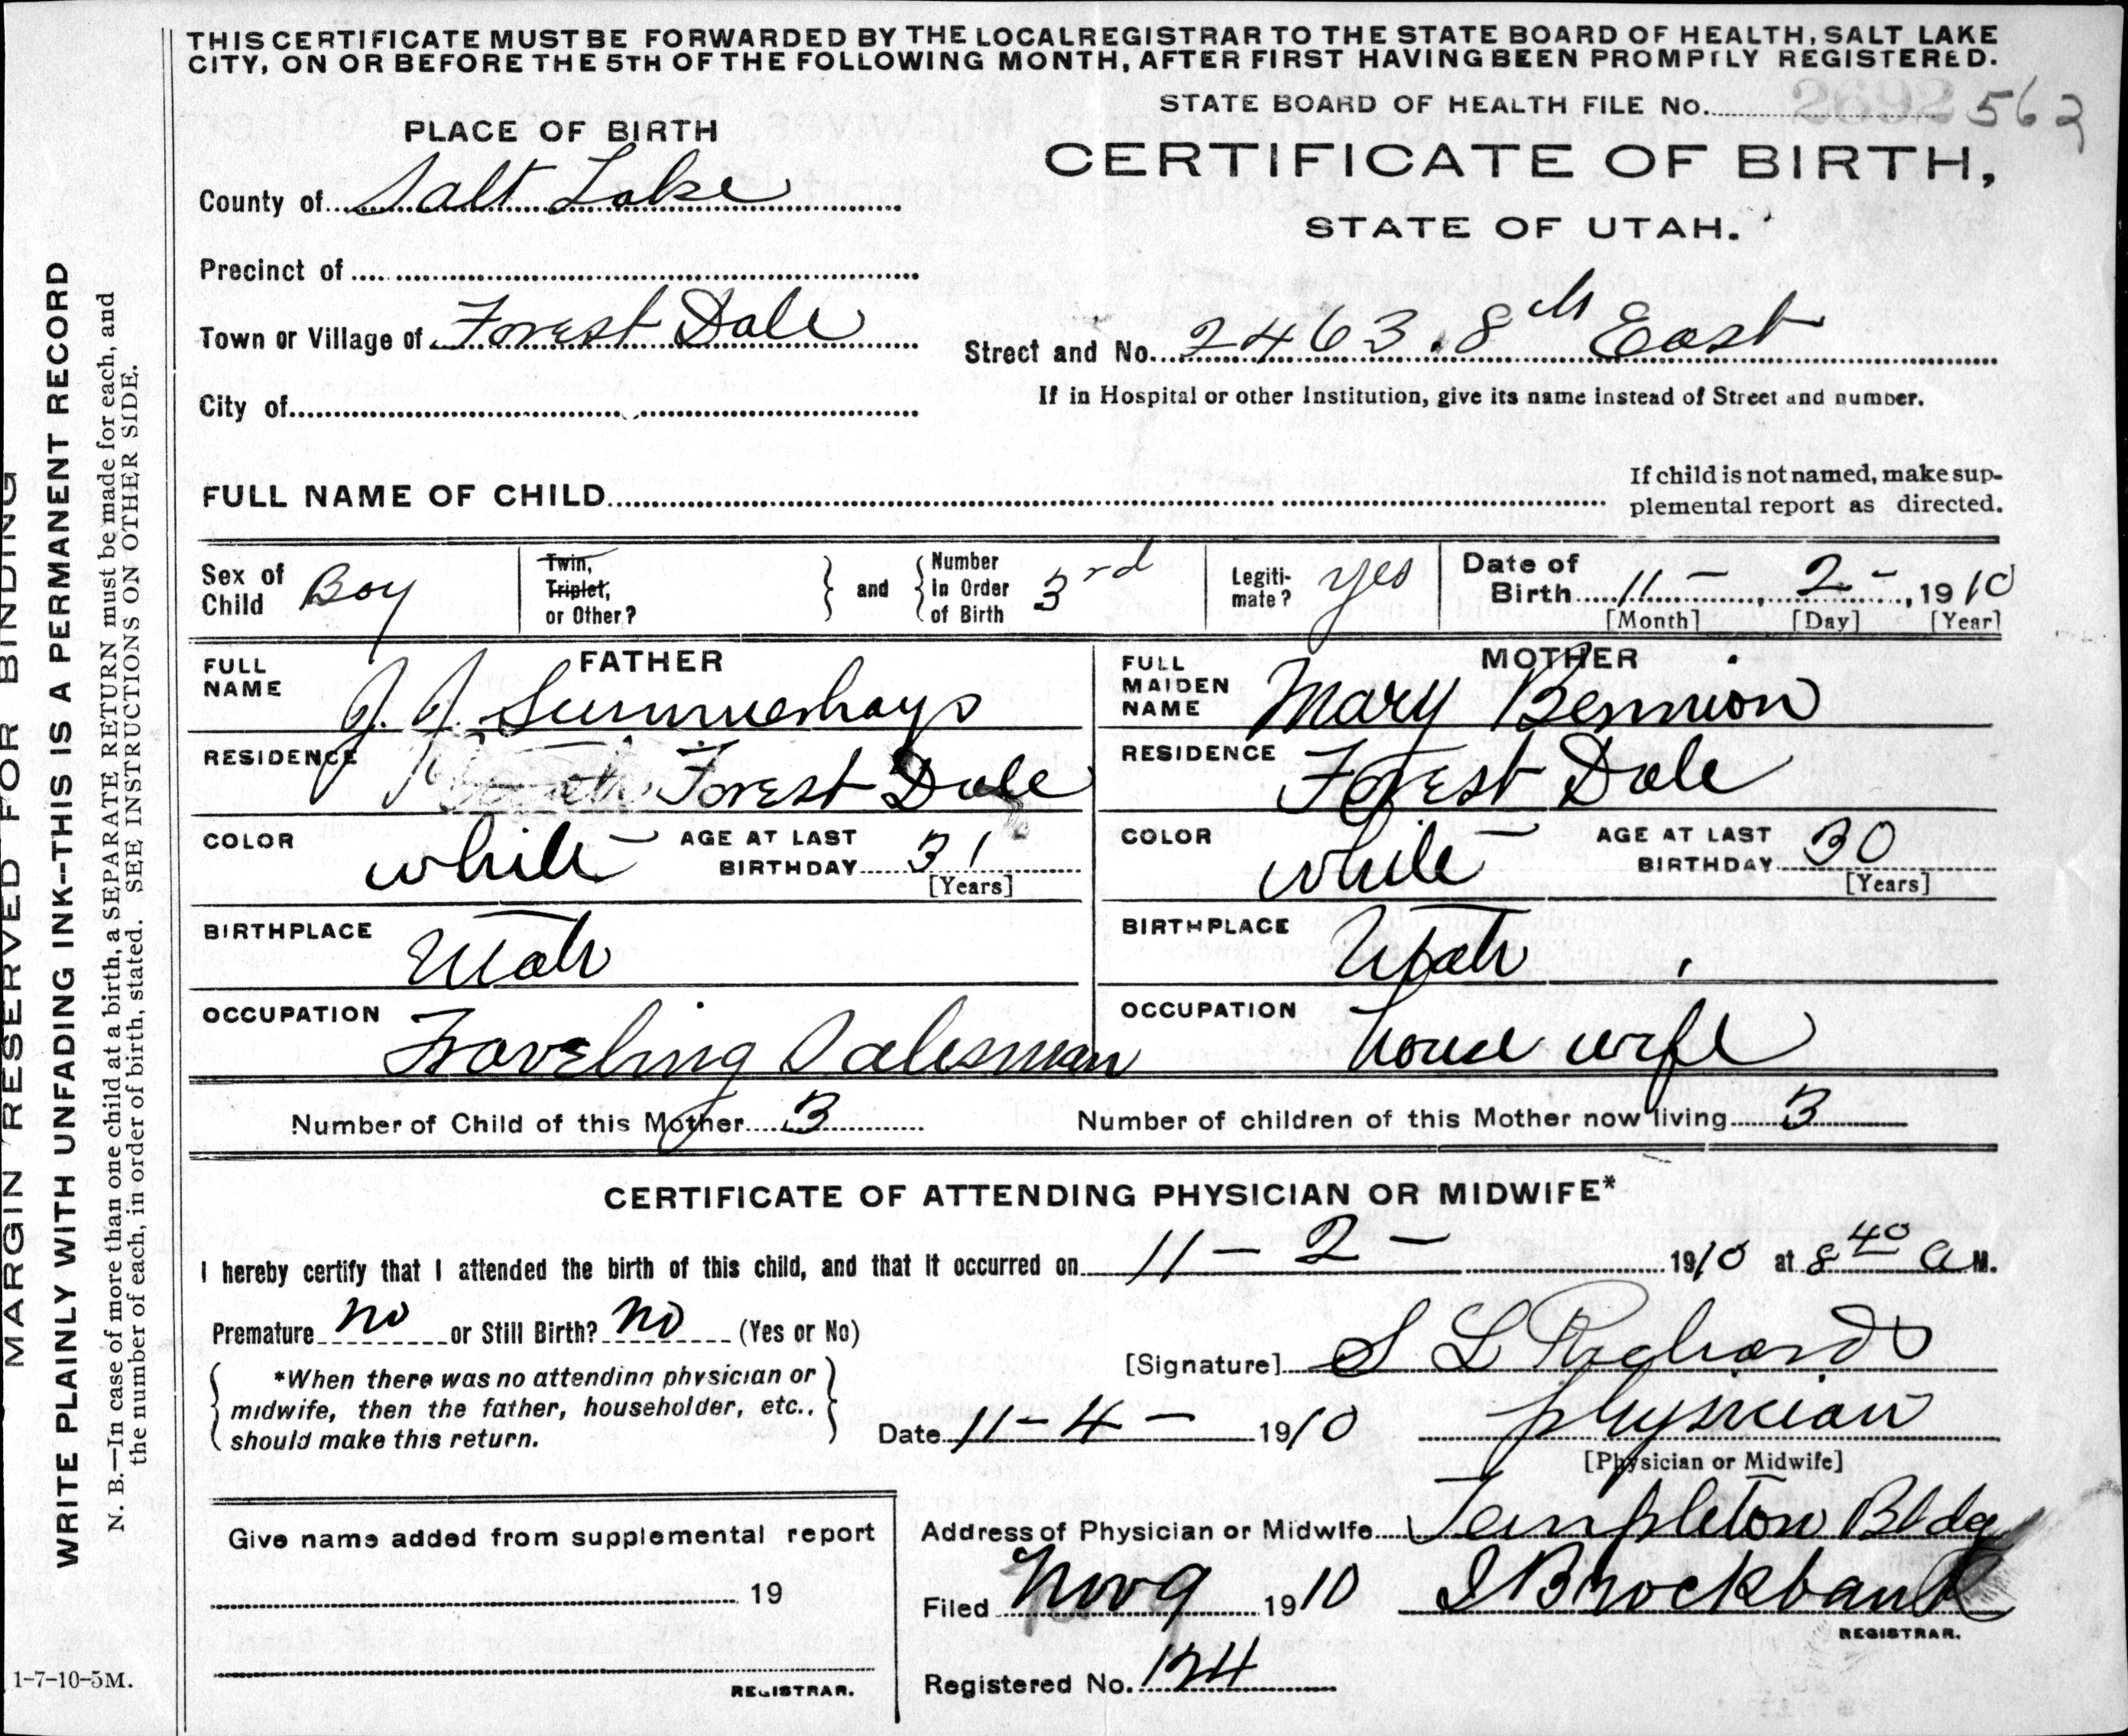 THIS CERTIFICATE MUST BE FORWARDED BY THE LOCAL REGISTRAR TO THE STATE BOARD OF HEALTH, SALT LAKE
CITY, ON OR BEFORE THE 5TH OF THE FOLLOWING MONTH, AFTER FIRST HAVING BEEN PROMPTLY REGISTERED.
STATE BOARD OF HEALTH FILE No. 2692 563
PLACE OF BIRTH
CERTIFICATE OF BIRTH,
STATE OF UTAH.
County of Salt Lake
Precinct of
Town or Village of Forest Dale
Street and No. 2463. 8th East
If in Hospital or other Institution, give its name instead of Street and number.
City of
FULL NAME OF CHILD
If child is not named, make sup-
plemental report as directed.
Sex of
Child Boy
Twin,
Triplet,
or Other?
and
Number
in Order
of Birth 3rd
Legiti-
mate? yes
Date of
Birth 11 - 2 -, 1910
[Month] [Day] [Year]
FATHER
FULL
NAME J. J. Summerhays
MOTHER
FULL
MAIDEN
NAME Mary Bennion
RESIDENCE Forest Dale
RESIDENCE Forest Dale
COLOR white AGE AT LAST
BIRTHDAY 31
[Years]
COLOR white AGE AT LAST
BIRTHDAY 30
[Years]
BIRTHPLACE Utah
BIRTHPLACE Utah
OCCUPATION Traveling Salesman
OCCUPATION house wife
Number of Child of this Mother 3
Number of children of this Mother now living 3
CERTIFICATE OF ATTENDING PHYSICIAN OR MIDWIFE*
I hereby certify that I attended the birth of this child, and that it occurred on 11 - 2 - 1910 at 8 40 a M.
Premature no or Still Birth? no (Yes or No)
[Signature] S L Richards
*When there was no attending physician or
midwife, then the father, householder, etc.,
should make this return.
Date 11 - 4 - 1910
physician
[Physician or Midwife]
Give name added from supplemental report
19
REGISTRAR.
Address of Physician or Midwife Templeton Bldg
Filed Nov 9 1910 J Brockbank
REGISTRAR.
Registered No. 124
MARGIN RESERVED FOR BINDING
WRITE PLAINLY WITH UNFADING INK--THIS IS A PERMANENT RECORD
N. B.—In case of more than one child at a birth, a SEPARATE RETURN must be made for each, and
the number of each, in order of birth, stated. SEE INSTRUCTIONS ON OTHER SIDE.
1-7-10-5M.